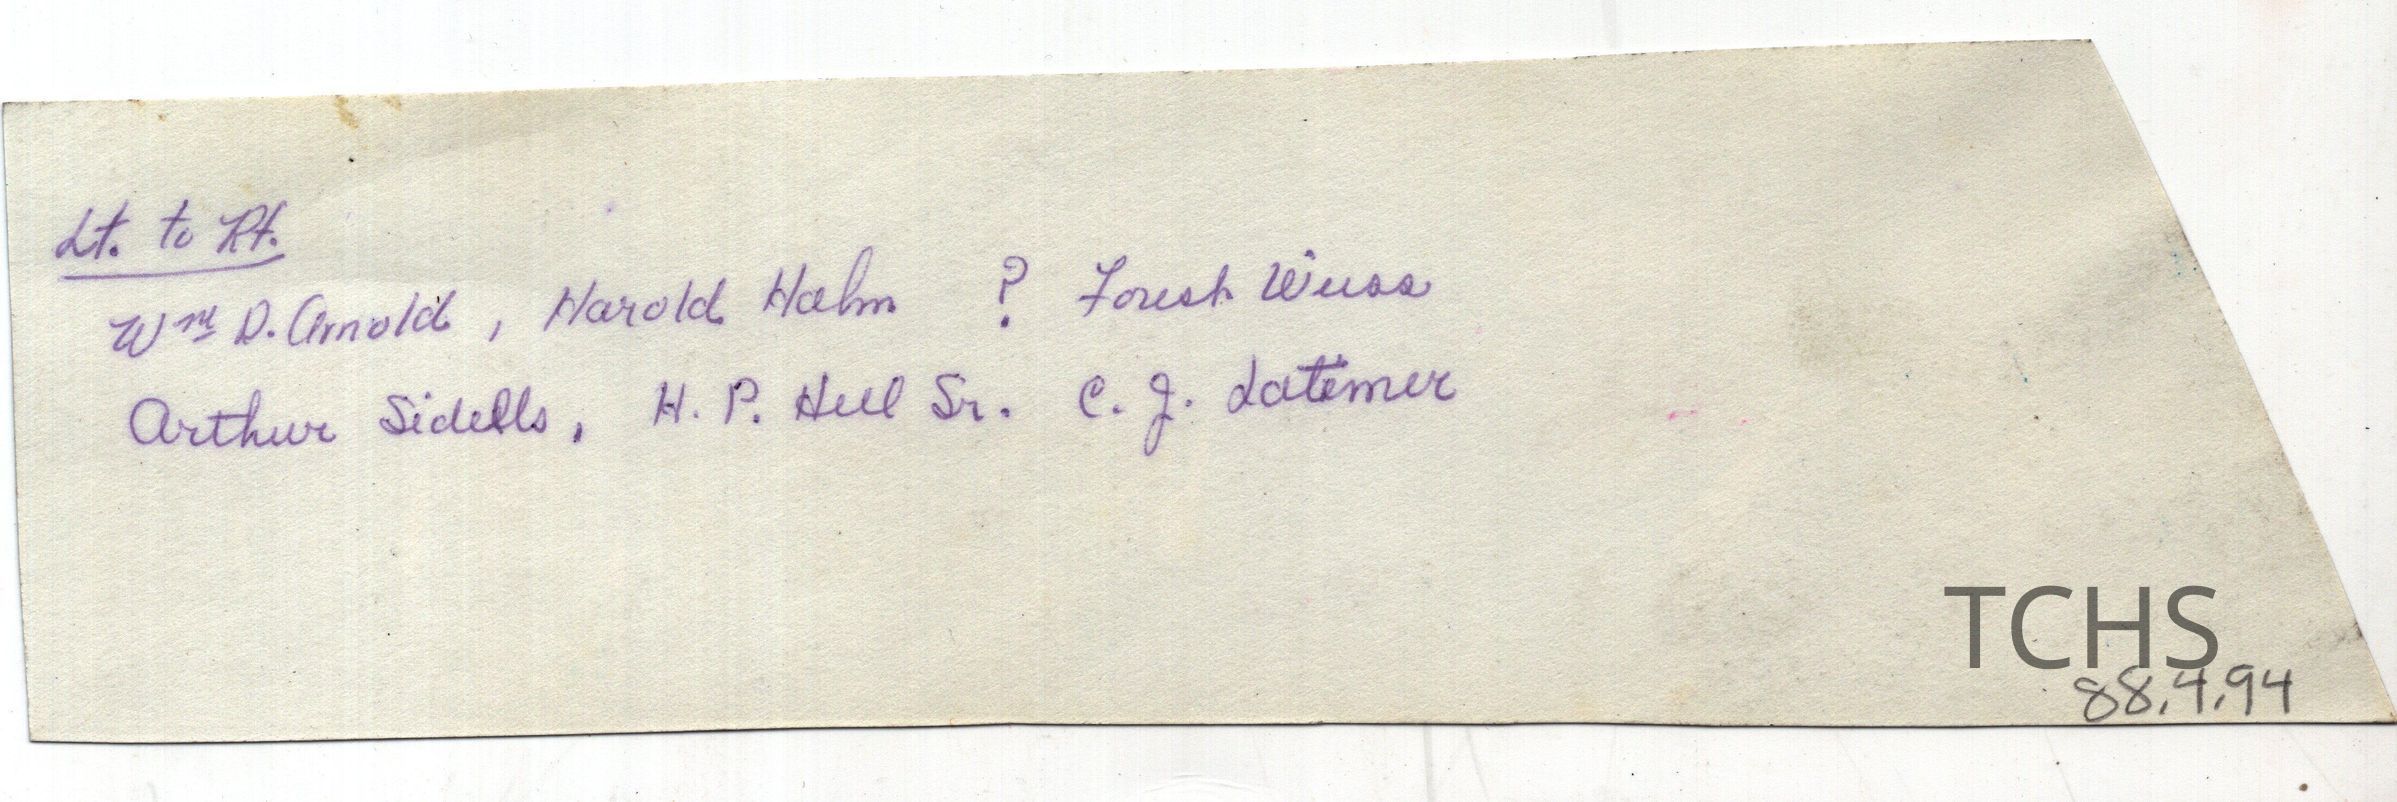 Lt. to Rt.
Wm D. Arnold, Harold Halm ? Forest Weiss
Arthur Sidells, H. P. Hell Sr. C. J. Latimer
TCHS
88.4.94